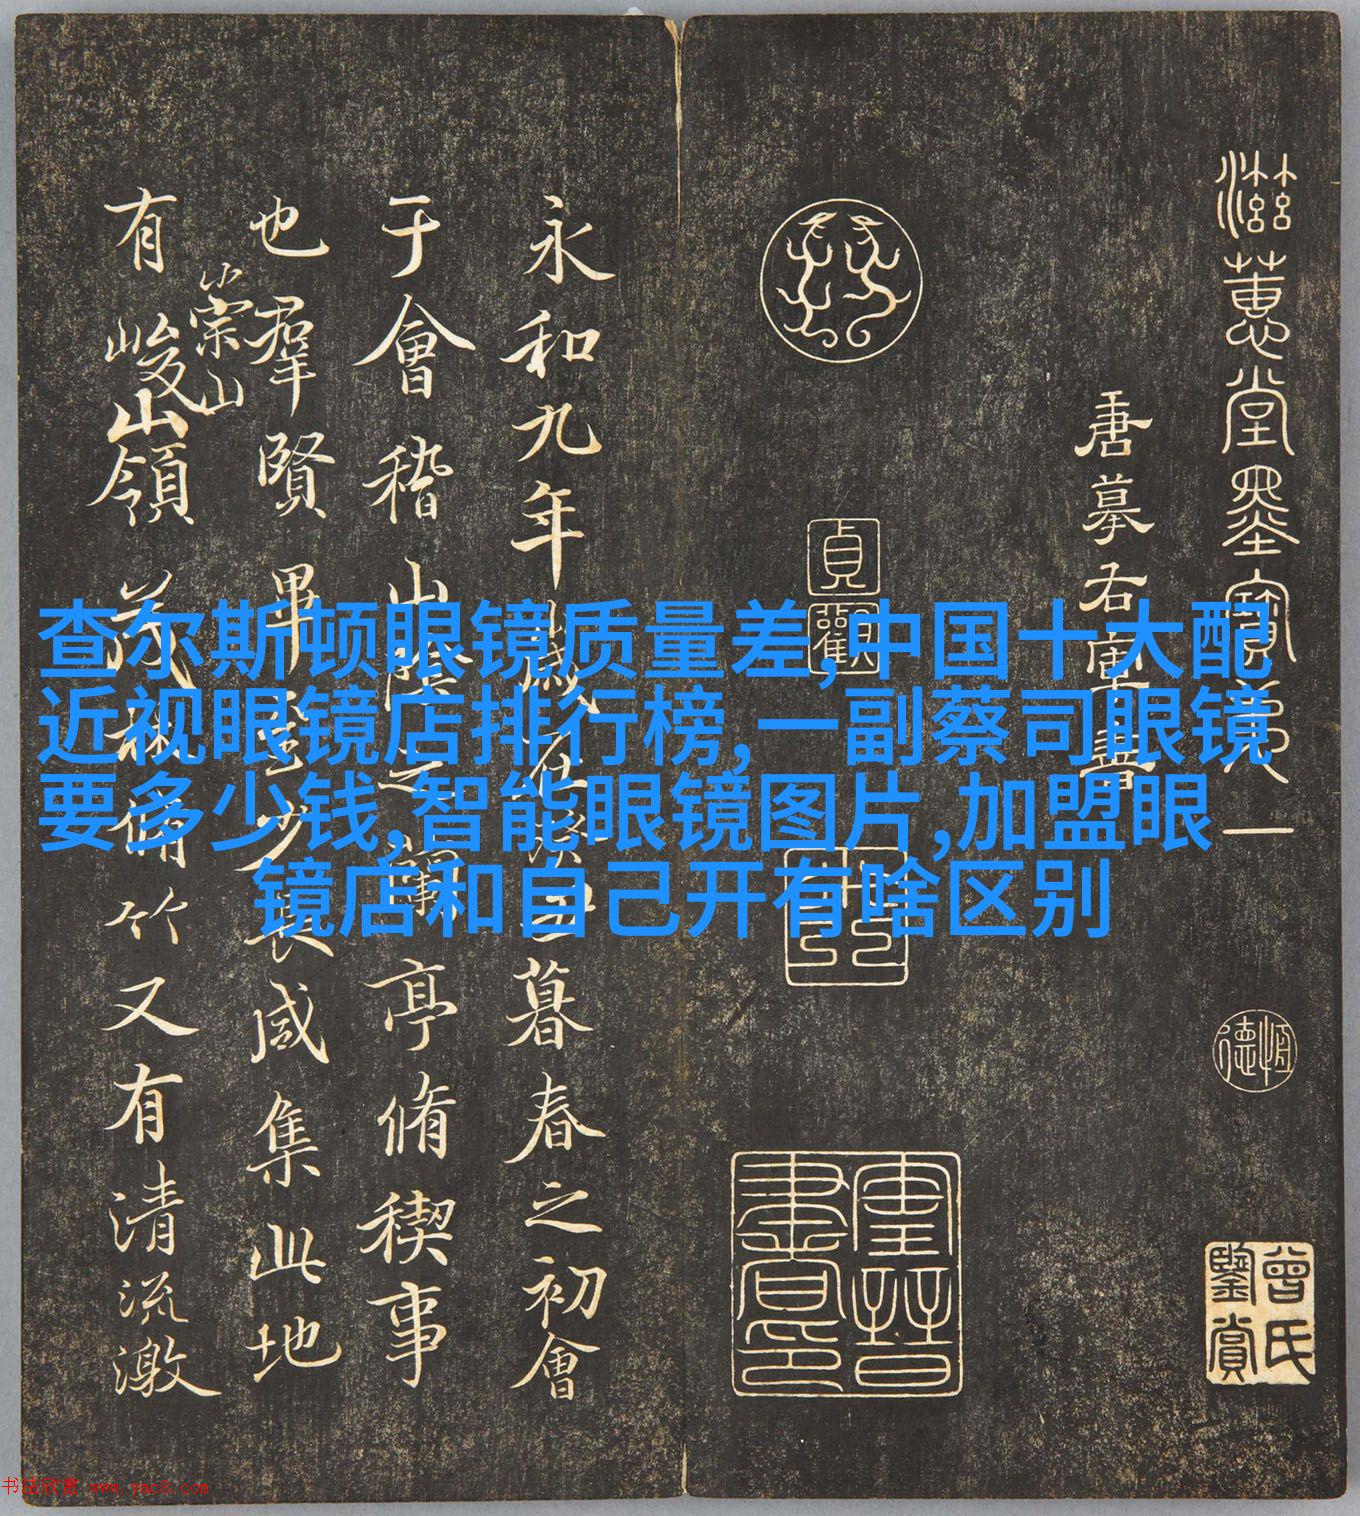 滋蕙堂墨寶第一
唐摹右軍書
貞觀
曾氏鑒賞
永和九年歲在癸丑暮春之初會
于會稽山陰之蘭亭脩稧事
也羣賢畢至少長咸集此地
有崇山峻山領茂林脩竹又有清流激
查尔斯顿眼镜质量差,中国十大配
近视眼镜店排行榜,一副蔡司眼镜
要多少钱,智能眼镜图片,加盟眼
镜店和自己开有啥区别
书法欣赏 www.yac8.com